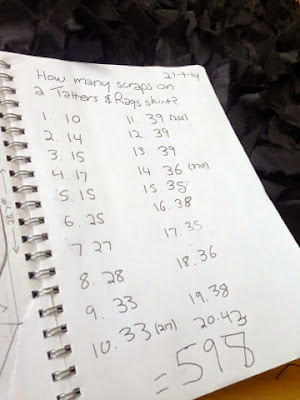 How many scraps on
a Tatters & Rags skirt?
1. 10
2. 14
3. 15
4. 17
5. 15
6. 25
7. 27
8. 28
9. 33
10. 33 (217)
11. 39 (256)
12. 39
13. 39
14. 36 (370)
15. 38
16. 38
17. 35
18. 36
19. 38
20. 43
= 598